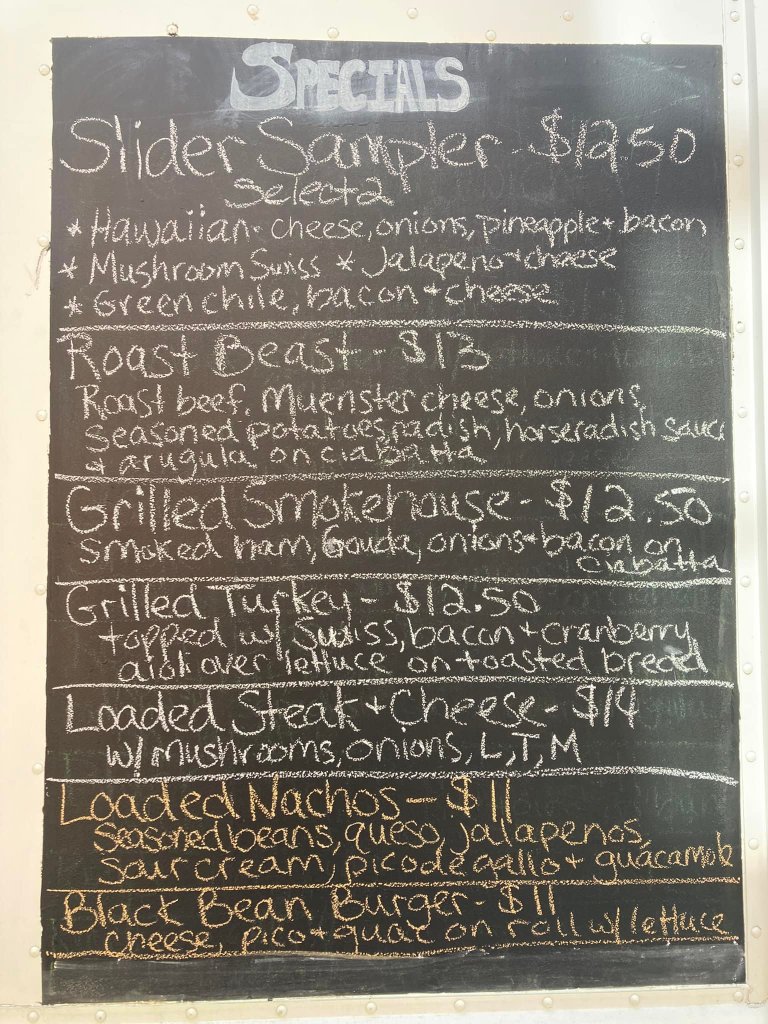 SPECIALS
Slider Sampler - $12.50
Select 2
* Hawaiian - cheese, onions, pineapple + bacon
* Mushroom Swiss * Jalapeno + cheese
* Green chile, bacon + cheese
Roast Beast - $13
Roast beef, Muenster cheese, onions,
seasoned potatoes, radish, horseradish sauce
+ arugula on ciabatta
Grilled Smokehouse - $12.50
smoked ham, Gouda, onions + bacon on
ciabatta
Grilled Turkey - $12.50
topped w/ Swiss, bacon + cranberry
aioli over lettuce on toasted bread
Loaded Steak + Cheese - $14
w/ mushrooms, onions, L, T, M
Loaded Nachos - $11
seasoned beans, queso, jalapenos,
sour cream, pico de gallo + guacamole
Black Bean Burger - $11
cheese, pico + guac on roll w/ lettuce